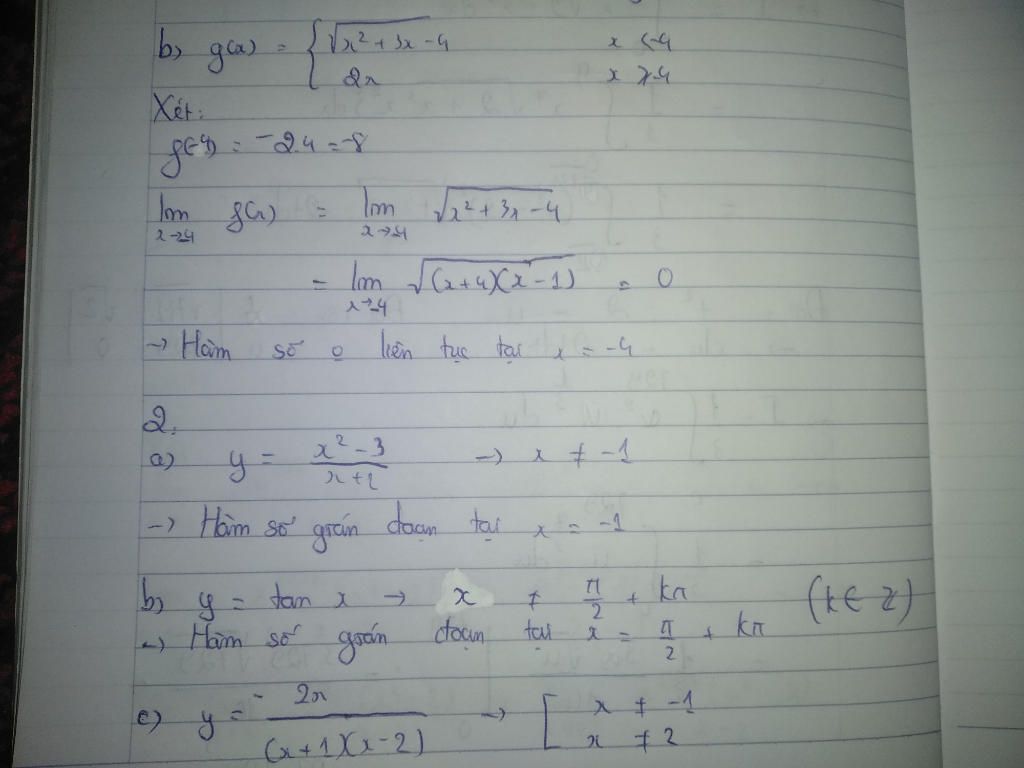 b) g(x) = { √(x² + 3x - 4) x < -4
2x x ≥ -4
Xét:
g(-4) = -2.4 = -8
lim x→-4 g(x) = lim x→-4 √(x² + 3x - 4)
= lim x→-4 √((x+4)(x-1)) = 0
→ Hàm số o liên tục tại x = -4
2.
a) y = (x² - 3)/(x+1) → x ≠ -1
→ Hàm số gián đoạn tại x = -1
b) y = tan x → x ≠ π/2 + kπ (k ∈ Z)
→ Hàm số gián đoạn tại x = π/2 + kπ
c) y = - 2x/((x+1)(x-2)) → [ x ≠ -1
x ≠ 2